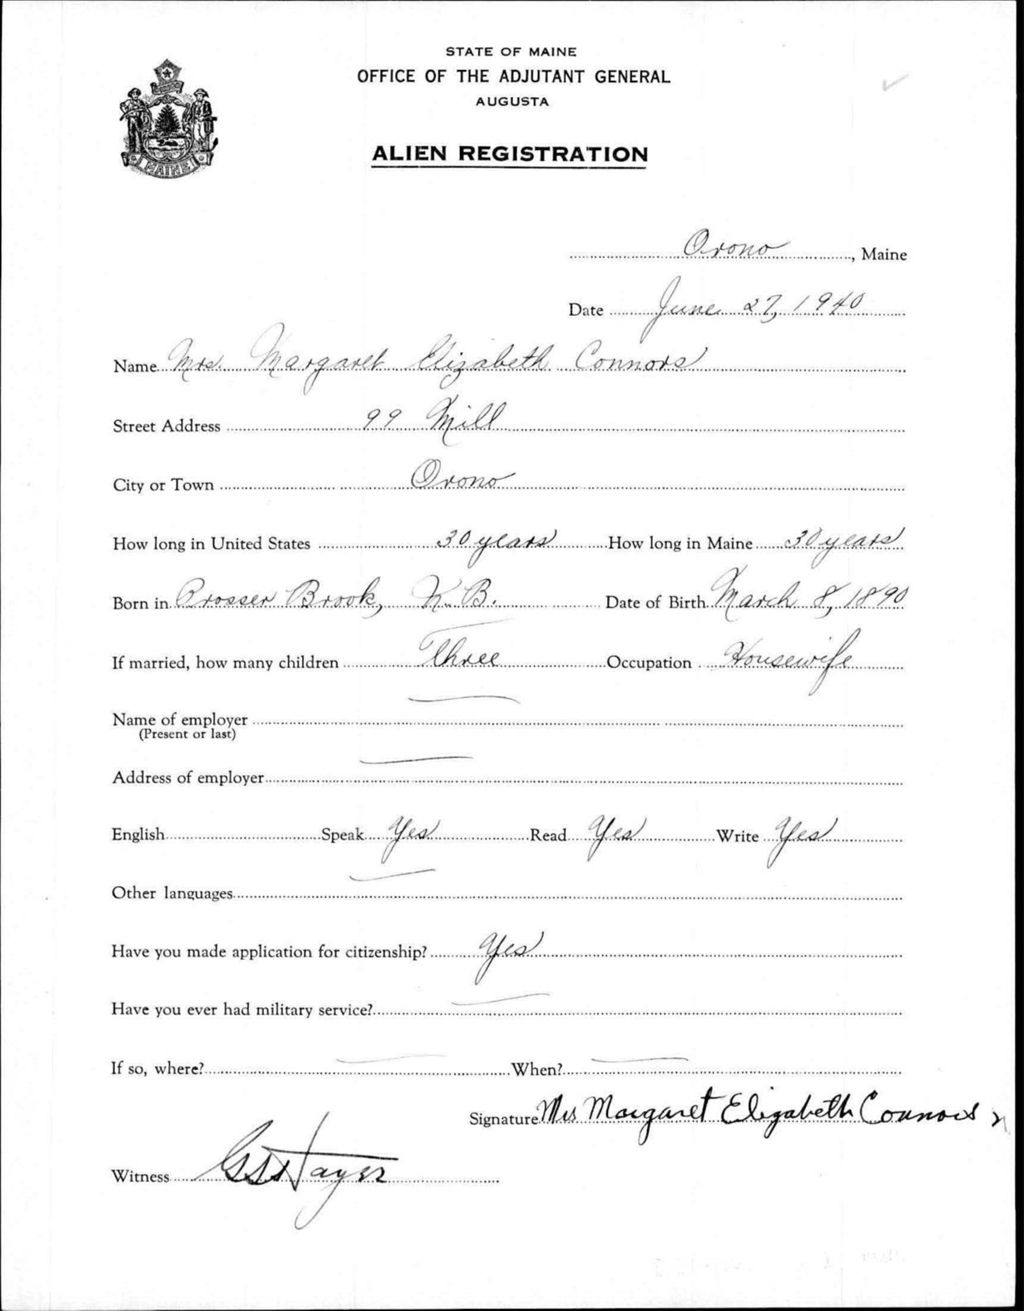 STATE OF MAINE
OFFICE OF THE ADJUTANT GENERAL
AUGUSTA
ALIEN REGISTRATION
MAINE
Orono, Maine
Date June 27, 1940
Name Mrs. Margaret Elizabeth Connors
Street Address 99 Mill
City or Town Orono
How long in United States 30 years How long in Maine 30 years
Born in Prosser Brook, N.B. Date of Birth March 8, 1890
If married, how many children Three Occupation Housewife
Name of employer
(Present or last)
Address of employer
English Speak Yes Read Yes Write Yes
Other languages
Have you made application for citizenship? Yes
Have you ever had military service?
If so, where? When?
Signature Mrs Margaret Elizabeth Connors
Witness